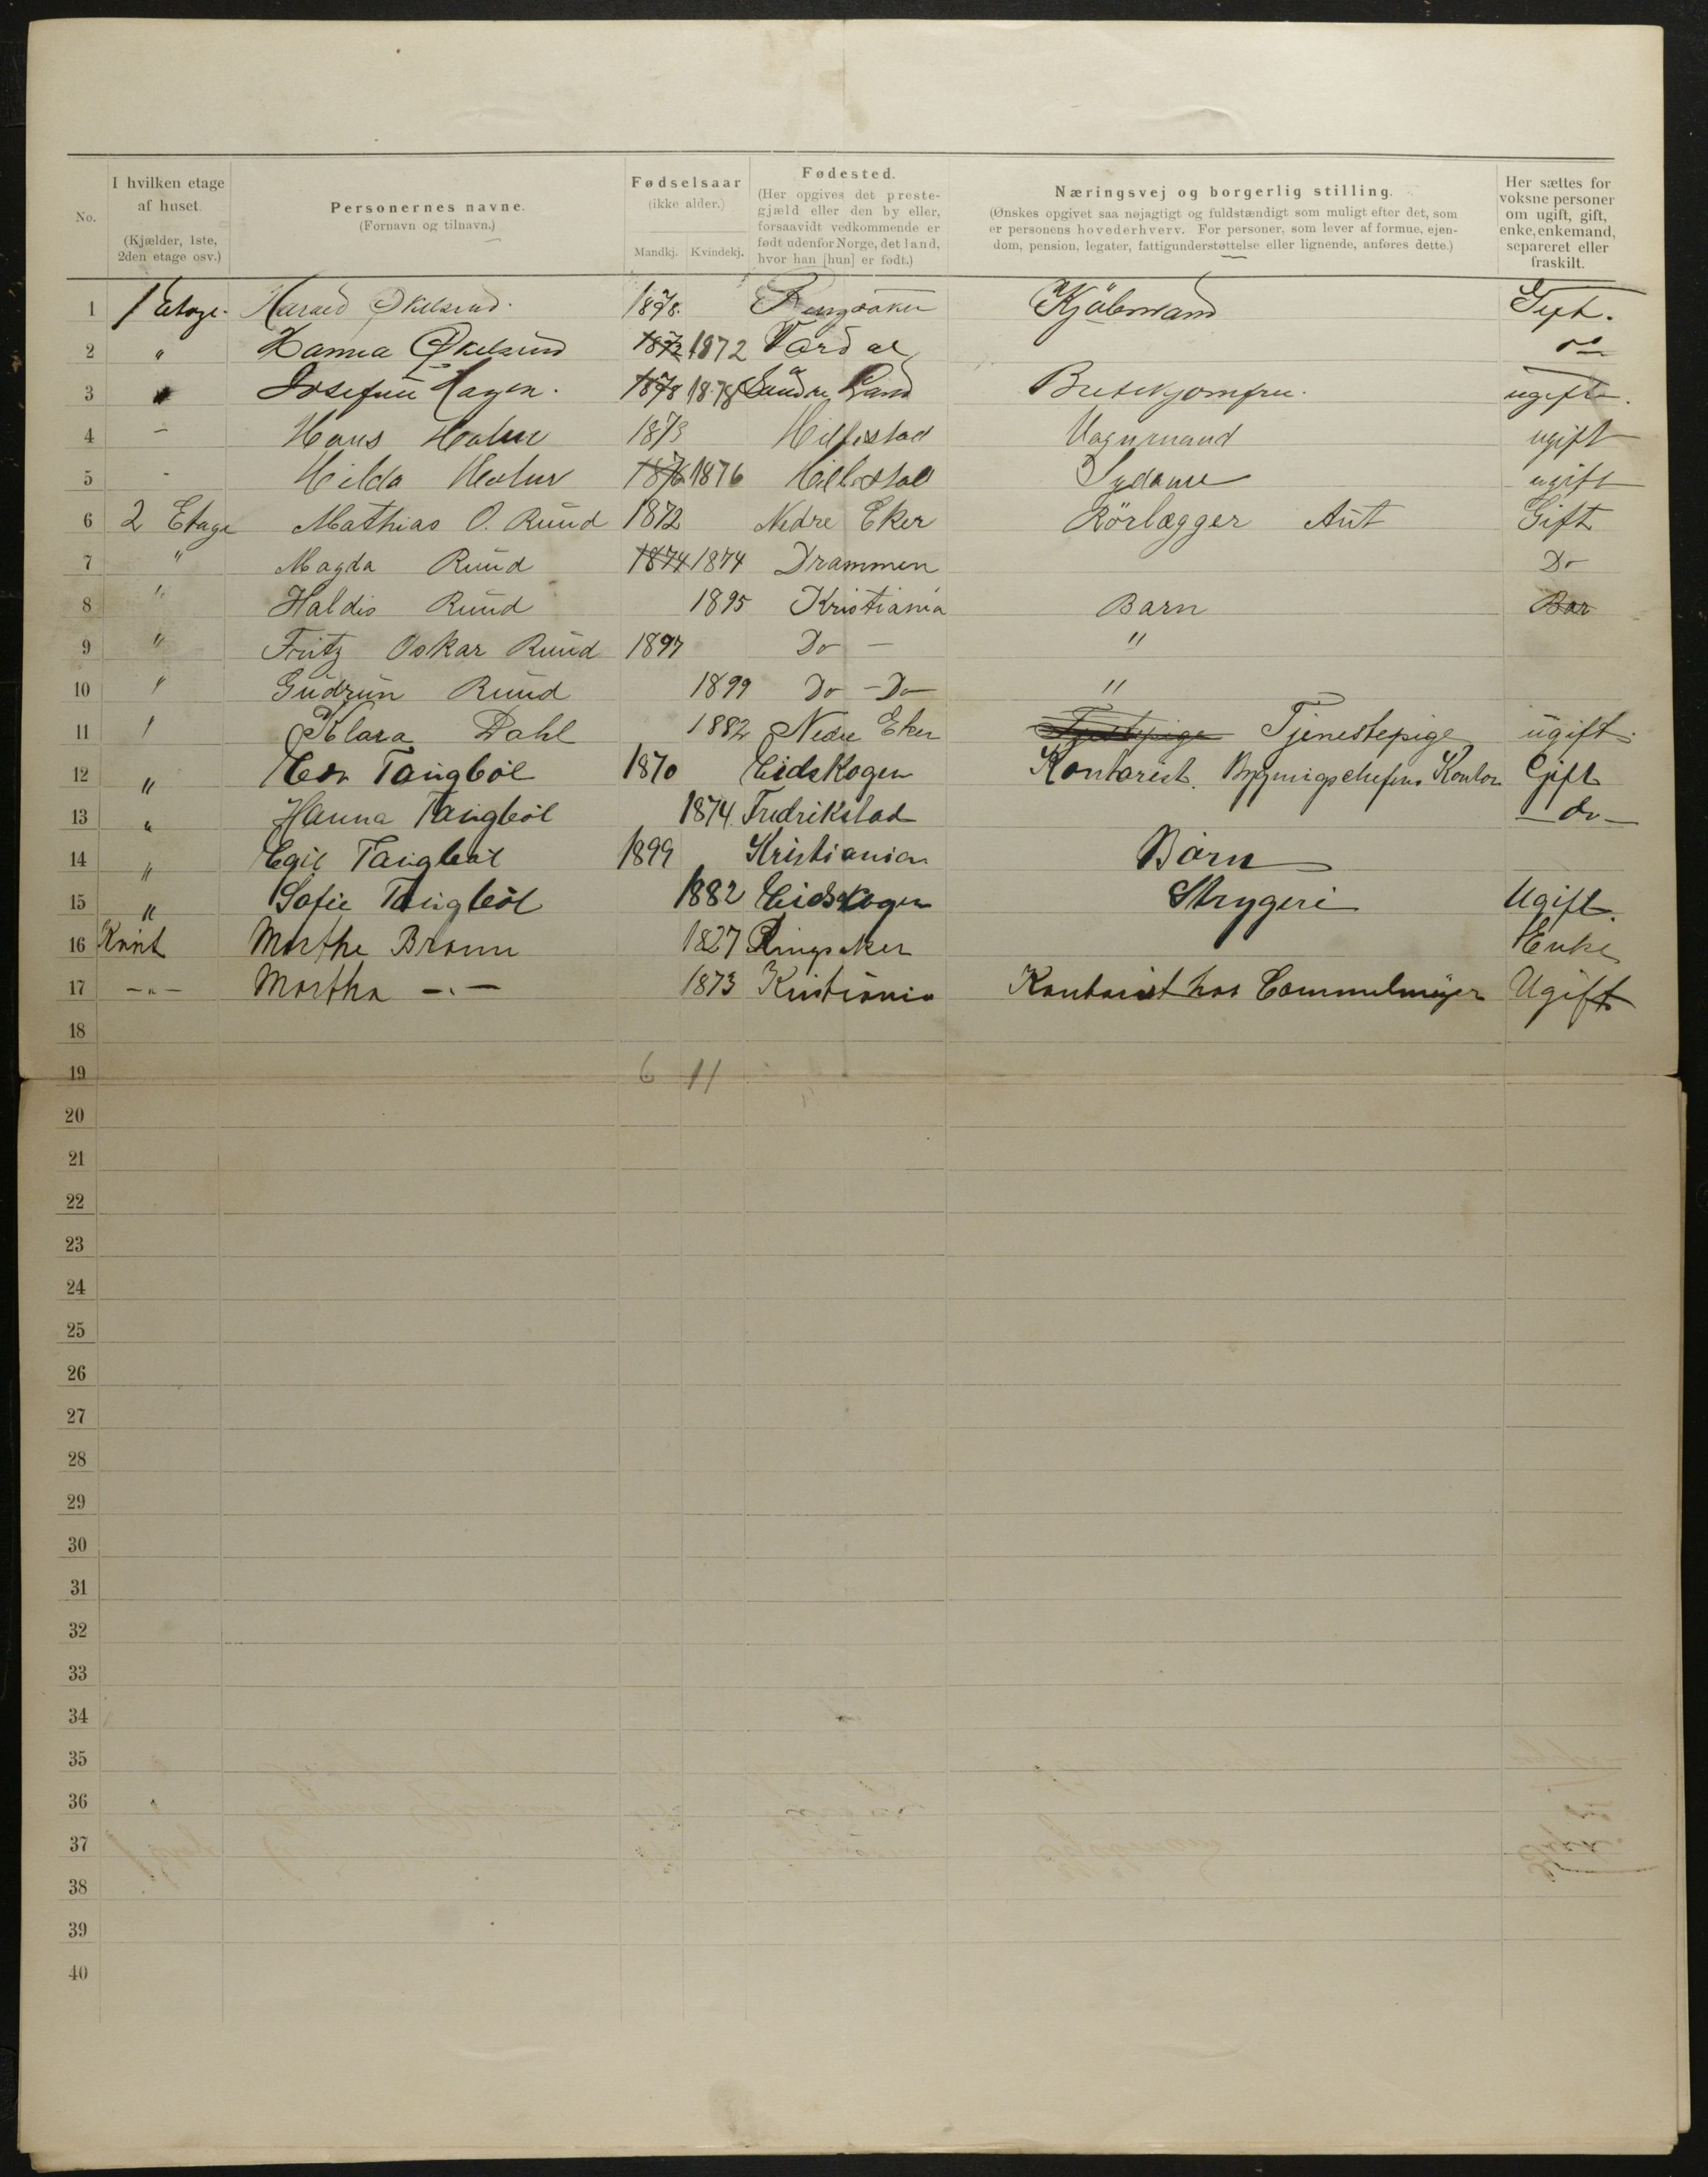 No.
I hvilken etage af huset. (Kjælder, 1ste, 2den etage osv.)
Personernes navne. (Fornavn og tilnavn.)
Fødselsaar (ikke alder.) Mandkj. Kvindekj.
Fødested. (Her opgives det prestegjæld eller den by eller, forsaavidt vedkommende er født udenfor Norge, det land, hvor han [hun] er født.)
Næringsvej og borgerlig stilling. (Ønskes opgivet saa nøjagtigt og fuldstændigt som muligt efter det, som er personens hovederhverv. For personer, som lever af formue, ejendom, pension, legater, fattigunderstøttelse eller lignende, anføres dette.)
Her sættes for voksne personer om ugift, gift, enke, enkemand, separeret eller fraskilt.
1 1 Etage. Harald Økelsrud. 1878. Ringsaker Kjøbmand Gift.
2 " Hanna Økelsrud 1872 1872 Vardal do
3 " Josefine Hagen. 1878 1878 Søndre Land Butikjomfru. ugift.
4 - Hans Holm 1873 Hillestad Vognmand ugift
5 - Hilda Holm 1876 1876 Hillestad Sydame ugift
6 2 Etage Mathias O. Ruud 1872 Nedre Eker Rörlægger Aut Gift
7 " Magda Ruud 1874 1874 Drammen Do
8 " Haldis Ruud 1895 Kristiania Barn Bar
9 " Fritz Oskar Ruud 1897 Do - "
10 " Gudrun Ruud 1899 Do - Do - "
11 " Klara Dahl 1882 Nedre Eker Tjenestepige ugift.
12 " Edv Tangböl 1870 Eidskogen Kontorist. Bygningschefens Kontor Gift
13 " Hanna Tangböl 1874. Fredrikstad - do -
14 " Egil Tangböl 1899 Kristiania Barn
15 " Sofie Tangböl 1882 Eidskogen Strygeri Ugift.
16 Kvist Marthe Brown 1827 Ringsaker Enke
17 - " - Martha - " - 1873 Kristiania Kontorist hos Gammelmeyer Ugift
18
19 6 11
20
21
22
23
24
25
26
27
28
29
30
31
32
33
34
35
36
37
38
39
40